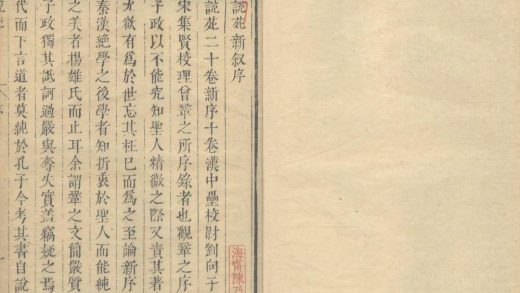 海甯陳乃
說苑新叙序
說苑二十卷新序十卷漢中壘校尉劉向子
宋集賢校理曾鞏之所序錄者也觀鞏之序
子政以不能究知聖人精微之際又責其著
才欲有為於世忘其枉已而為之至論新序
秦漢絶學之後學者知折衷於聖人而能純
之美者揚雄氏而止耳余謂鞏之文簡嚴質
子政獨其詆訶過嚴與奪失實蓋竊疑之焉
代而下言道者莫純於孔子今考其書自說